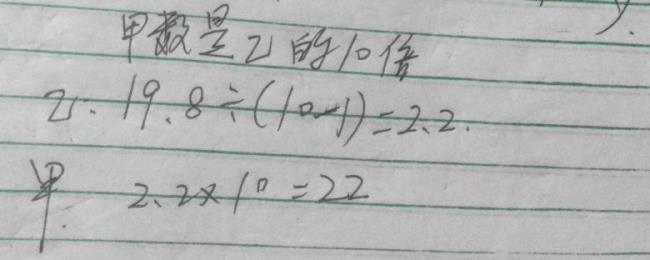 甲数是乙的10倍
乙:19.8÷(10-1)=2.2.
甲. 2.2×10=22